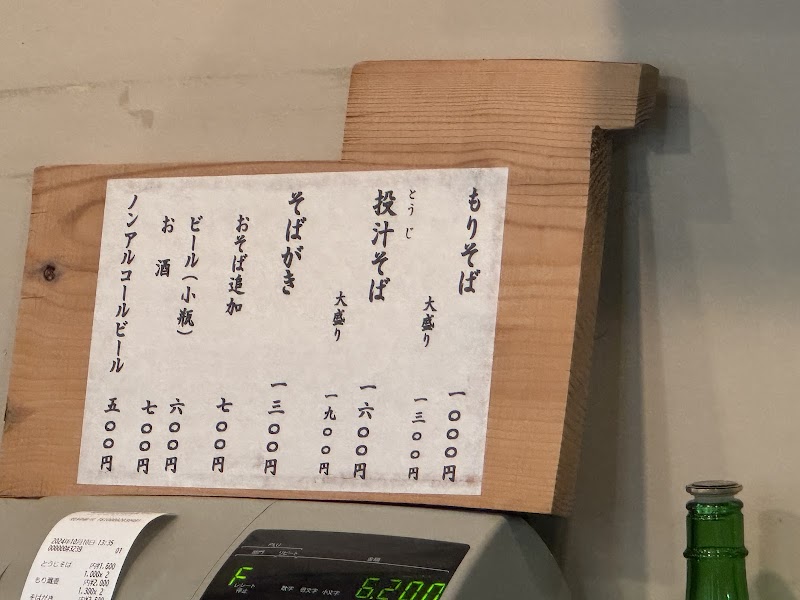 もりそば 一〇〇〇円
大盛り 一三〇〇円
とうじ
投汁そば 一六〇〇円
大盛り 一九〇〇円
そばがき 一三〇〇円
おそば追加 七〇〇円
ビール(小瓶) 六〇〇円
お酒 七〇〇円
ノンアルコールビール 五〇〇円
2024年10月10日 13:35
000000#3239 01
とうじそば 円¥1,600
1,000x 2
もり蕎麦 円¥2,000
1,300x 2
そばがき
F
6.200